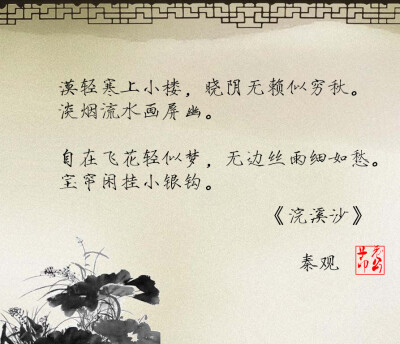 漠轻寒上小楼，晓阴无赖似穷秋。
淡烟流水画屏幽。
自在飞花轻似梦，无边丝雨细如愁。
宝帘闲挂小银钩。
《浣溪沙》
秦观